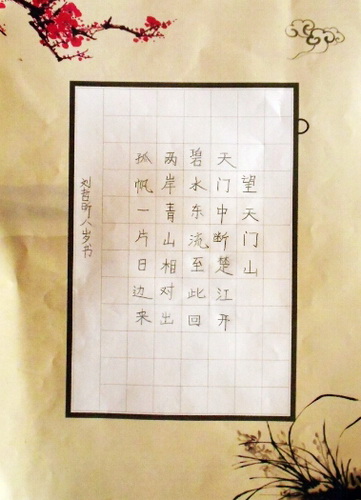 望天门山
天门中断楚江开
碧水东流至此回
两岸青山相对出
孤帆一片日边来
刘哲昕八岁书